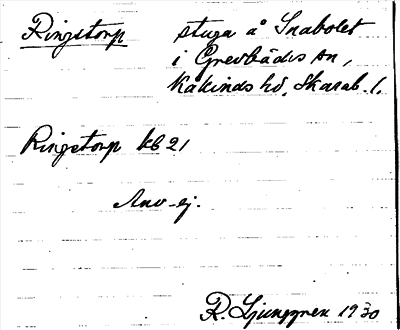 Ringstorp stuga å Snabolet
i Grevbäcks sn,
Kåkinds hd, Skarab. l.
Ringstorp kb 21
Anv. ej.
R. Ljunggren 1930